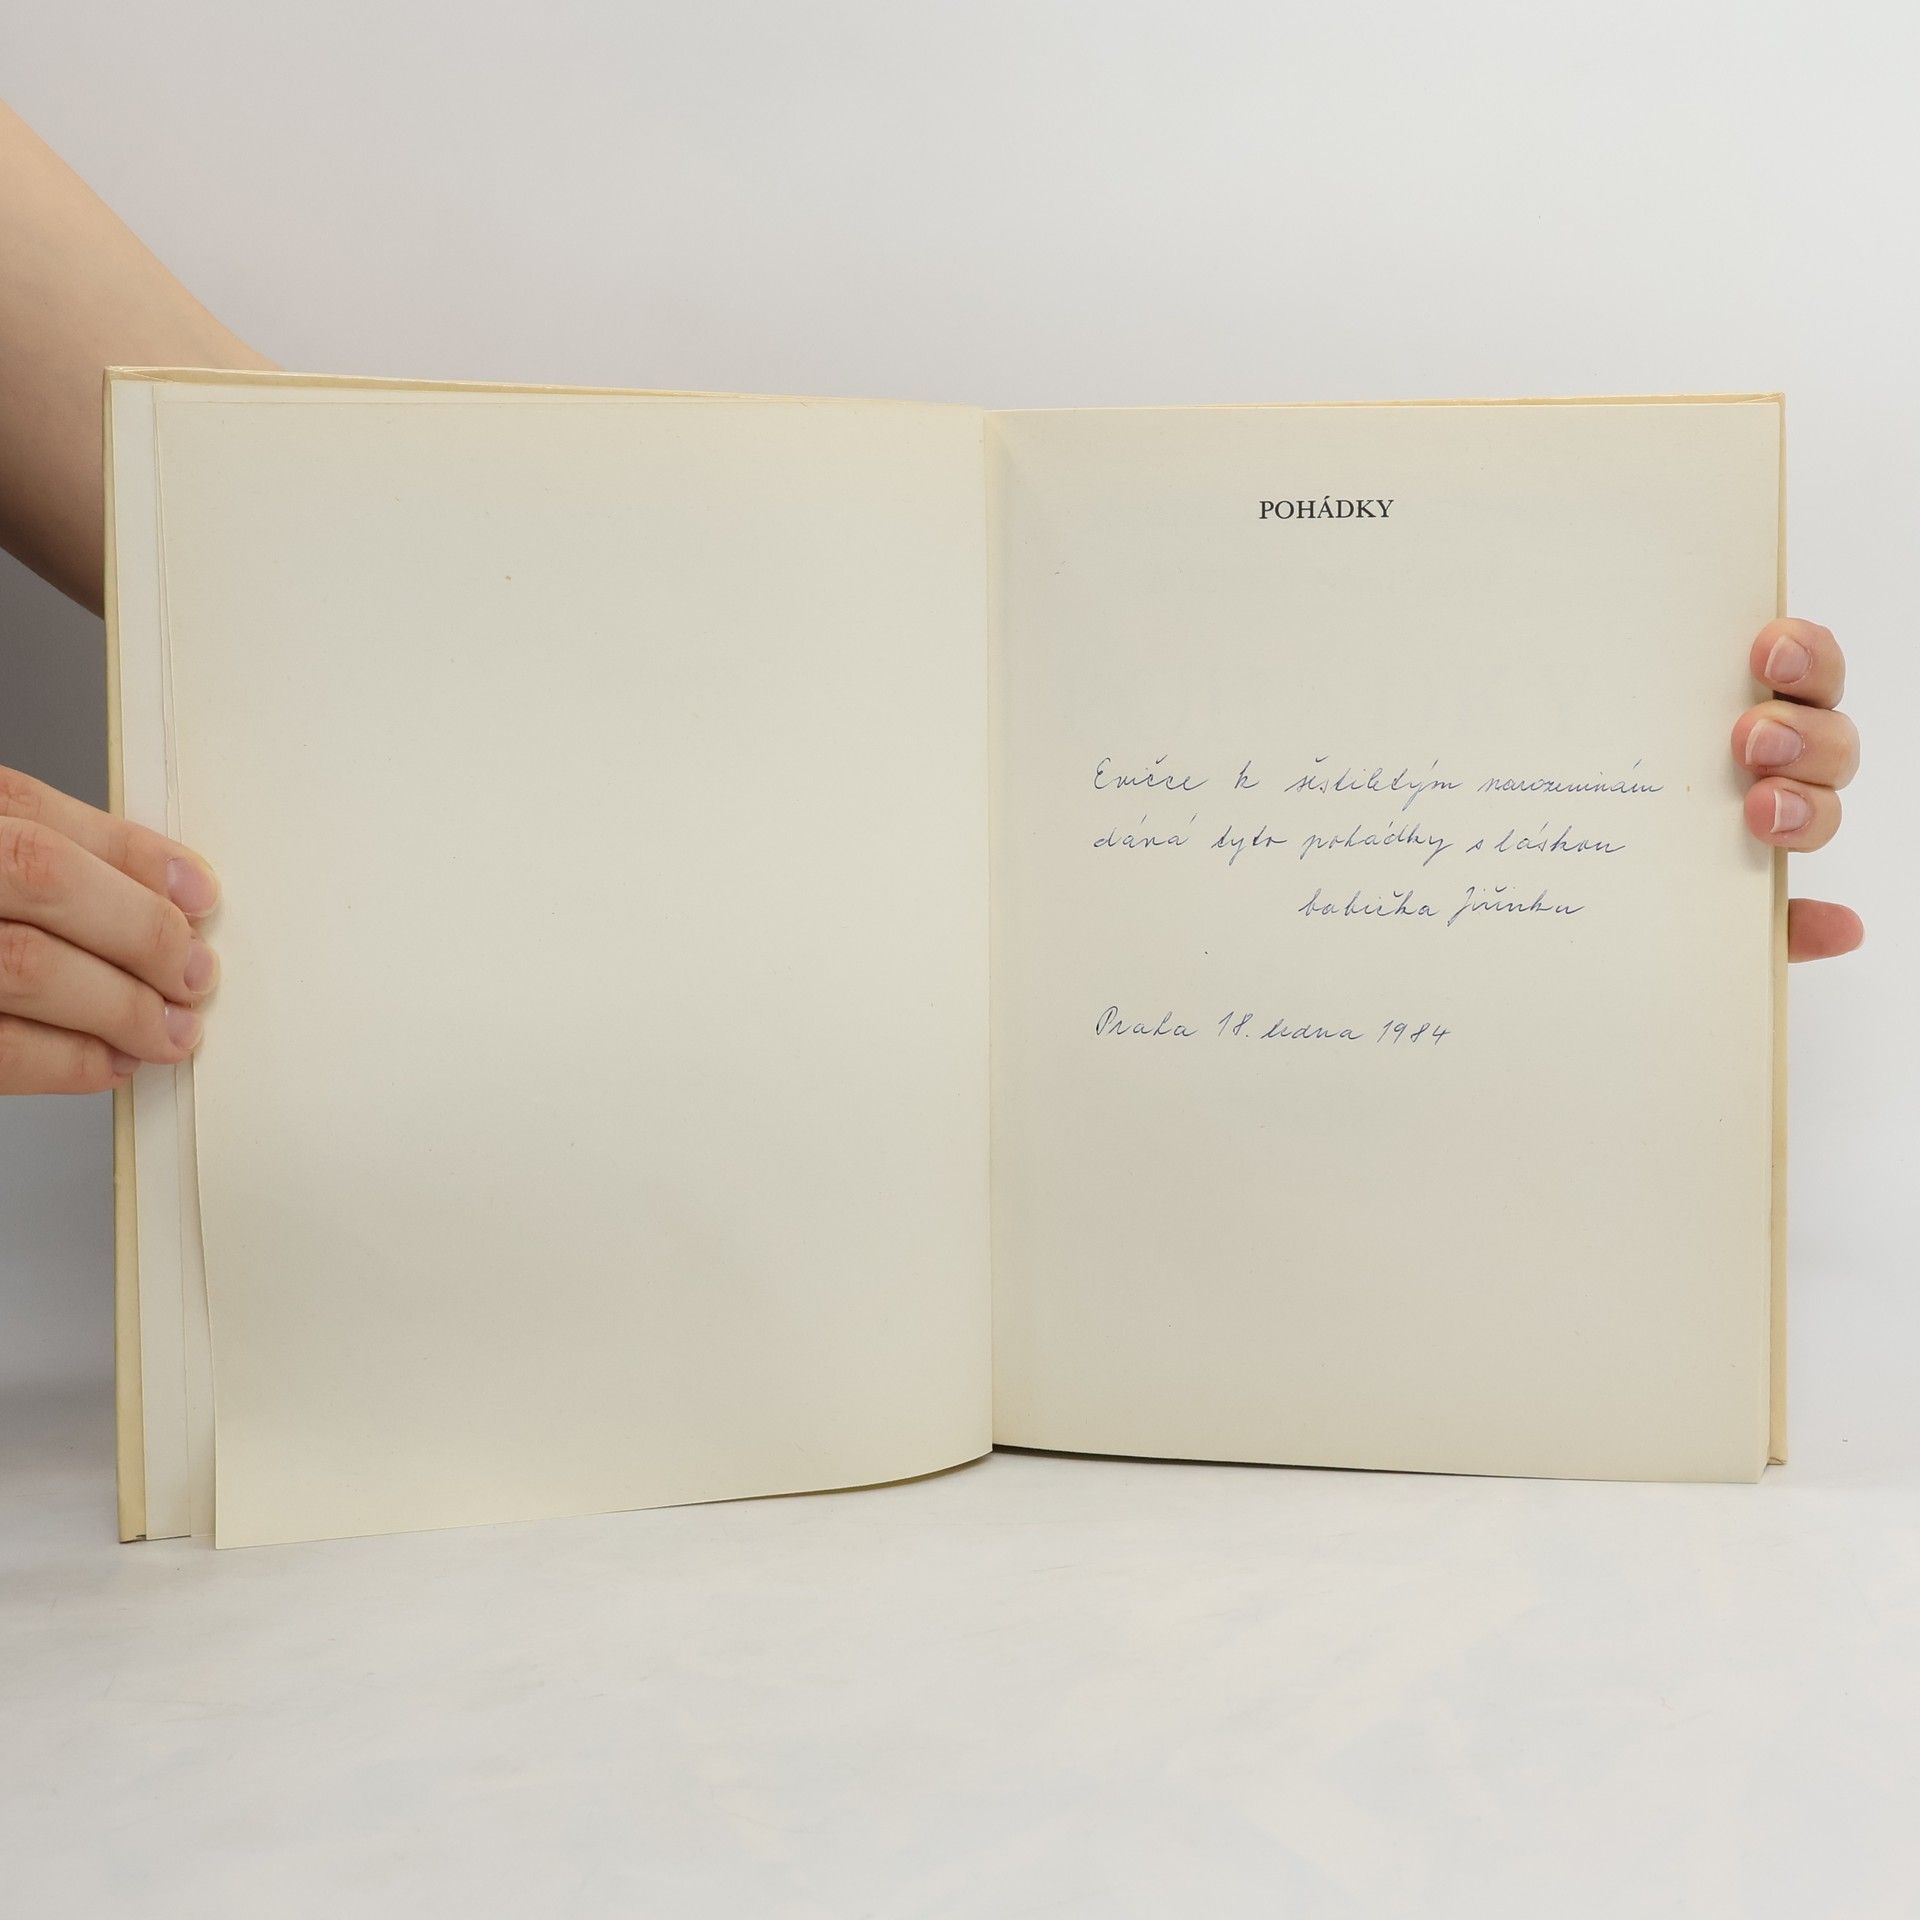 POHÁDKY
Evičce k šestiletým narozeninám
dává tyto pohádky s láskou
babička Jiřinka
Praha 18. ledna 1984